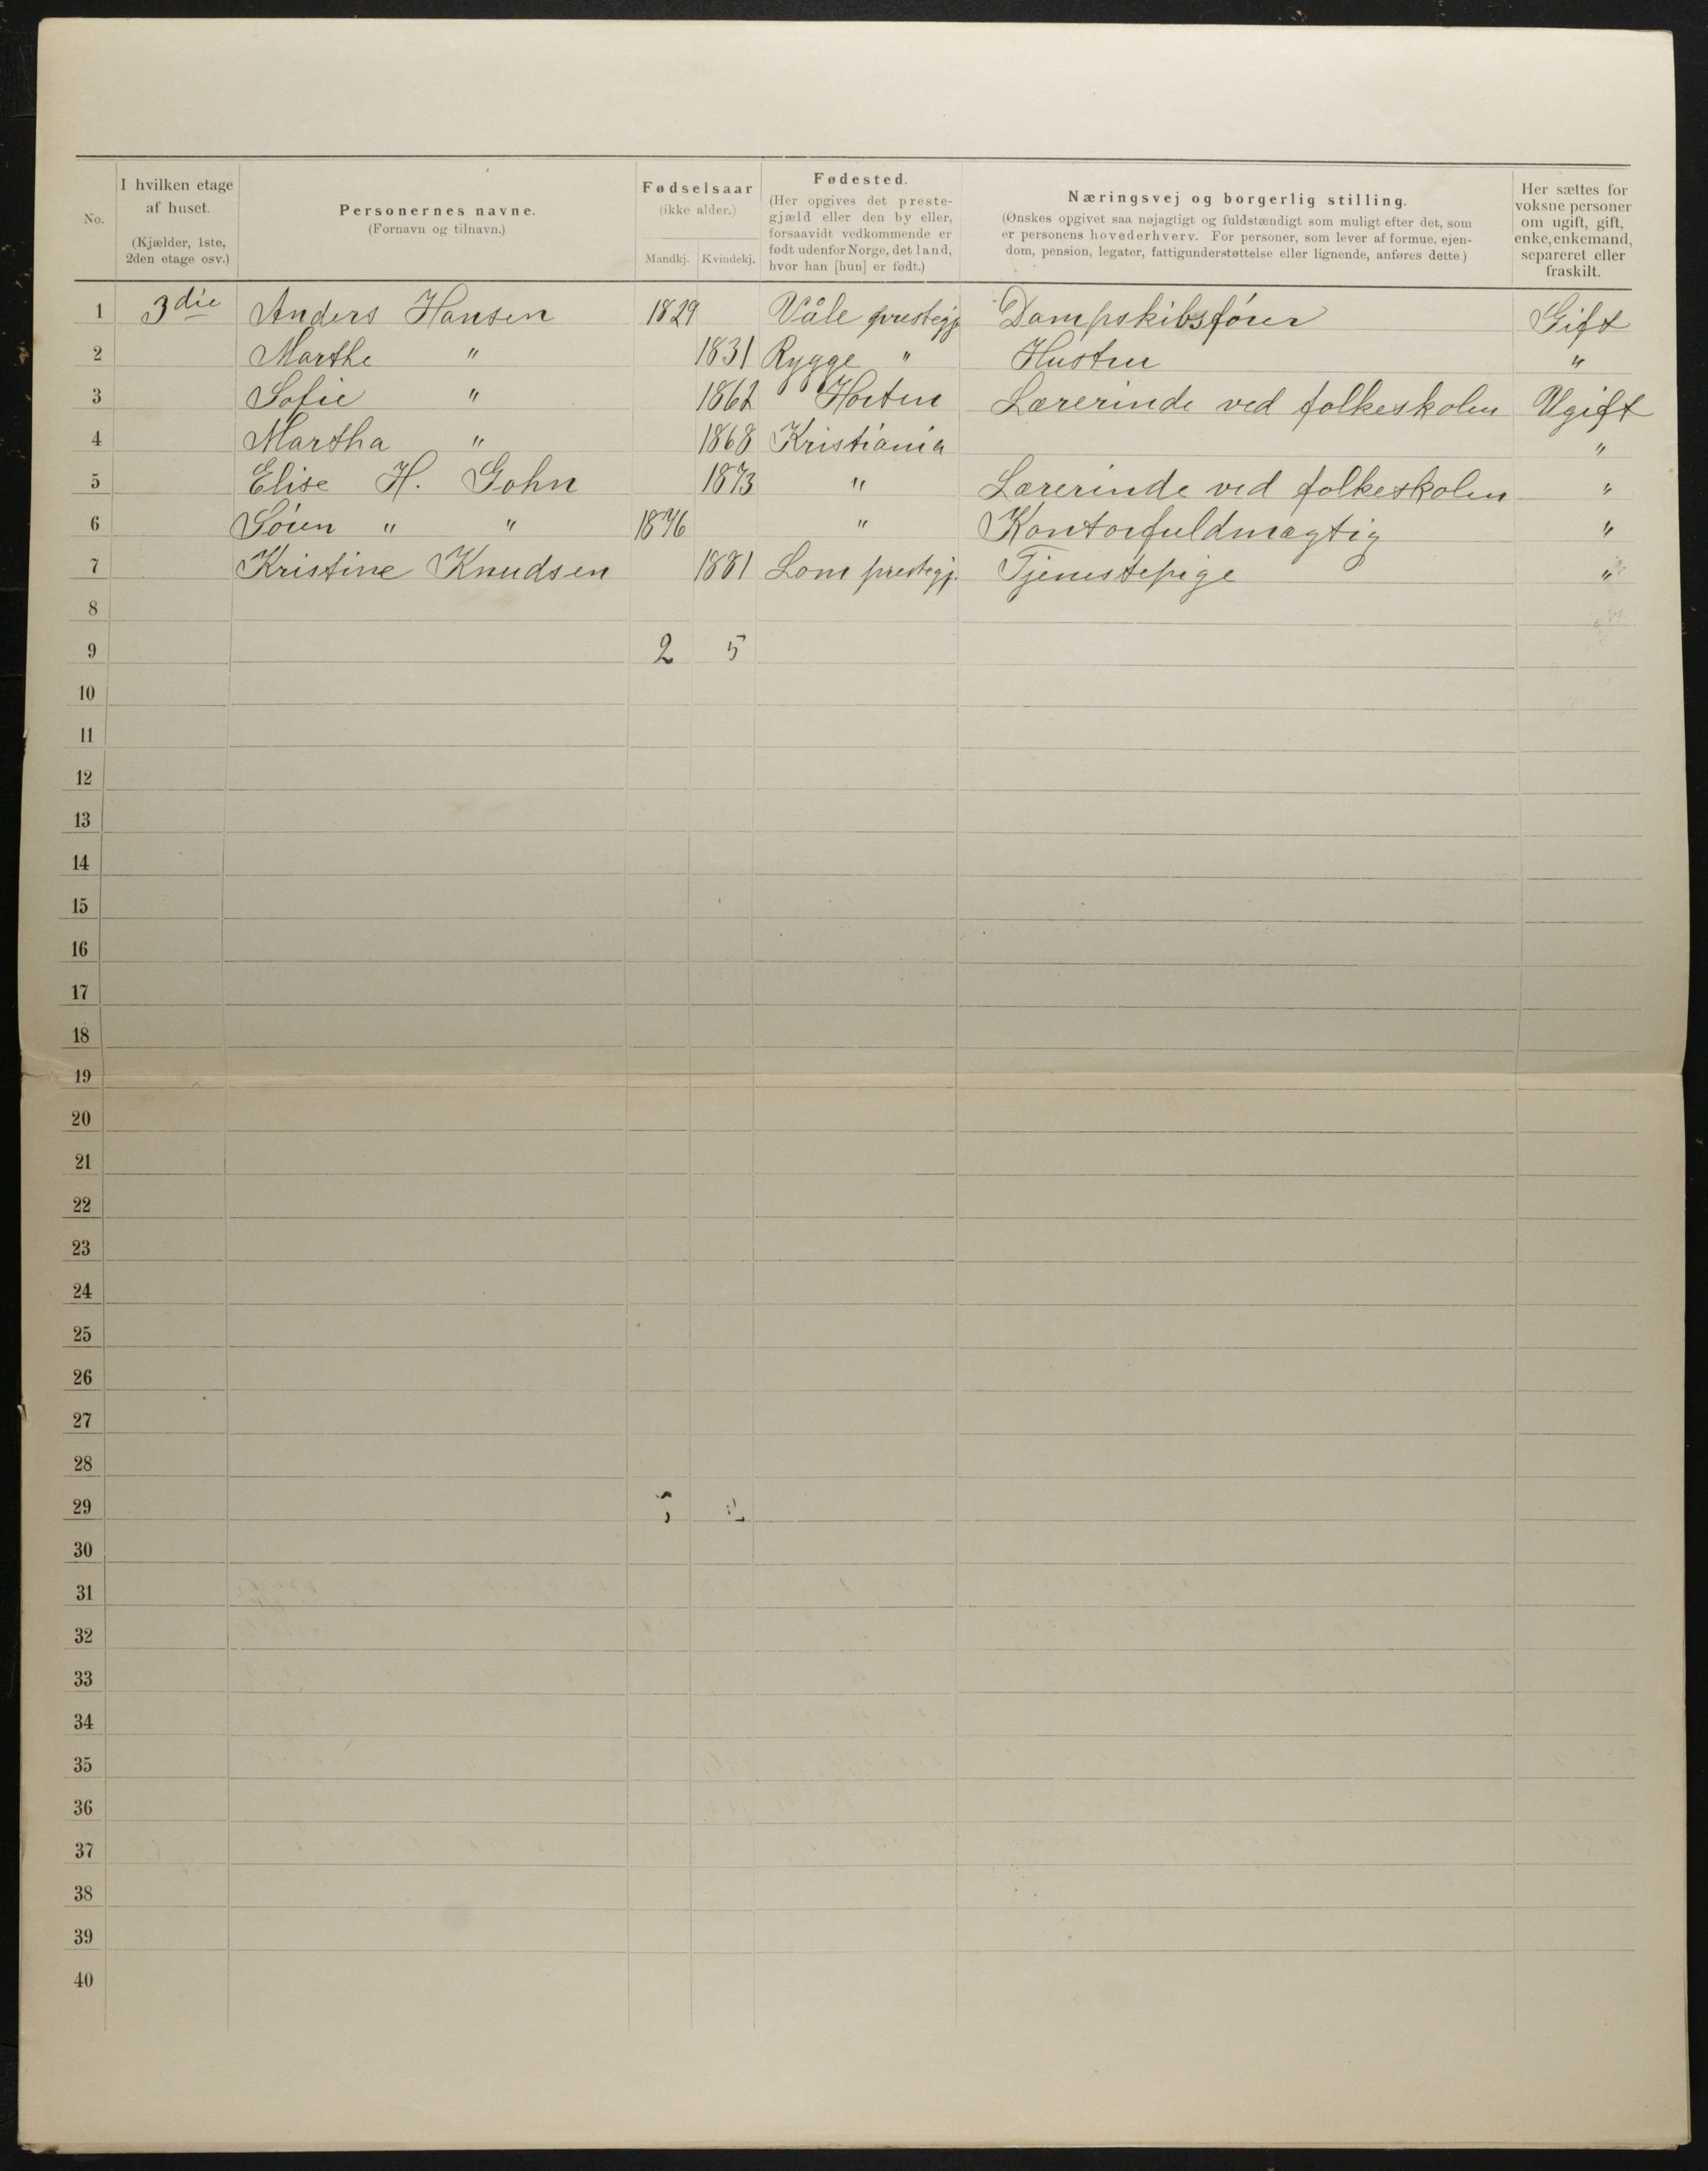 No.
I hvilken etage af huset. (Kjælder, 1ste, 2den etage osv.)
Personernes navne. (Fornavn og tilnavn.)
Fødselsaar (ikke alder.)
Mandkj. Kvindekj.
Fødested. (Her opgives det prestegjæld eller den by eller, forsaavidt vedkommende er født udenfor Norge, det land, hvor han [hun] er født.)
Næringsvej og borgerlig stilling. (Ønskes opgivet saa nøjagtigt og fuldstændigt som muligt efter det, som er personens hovederhverv. For personer, som lever af formue, ejendom, pension, legater, fattigunderstøttelse eller lignende, anføres dette)
Her sættes for voksne personer om ugift, gift, enke, enkemand, separeret eller fraskilt.
1 3die Anders Hansen 1829 Våle prestegj. Dampskibsfører Gift
2 Marthe " 1831 Rygge " Hustru "
3 Sofie " 1862 Horten Lærerinde ved folkeskolen Ugift
4 Martha " 1868 Kristiania "
5 Elise H. Gohn 1873 " Lærerinde ved folkeskolen "
6 Sören " " 1876 " Kontorfuldmægtig "
7 Kristine Knudsen 1881 Lom prestegj. Tjenestepige "
8
9 2 5
10
11
12
13
14
15
16
17
18
19
20
21
22
23
24
25
26
27
28
29
30
31
32
33
34
35
36
37
38
39
40